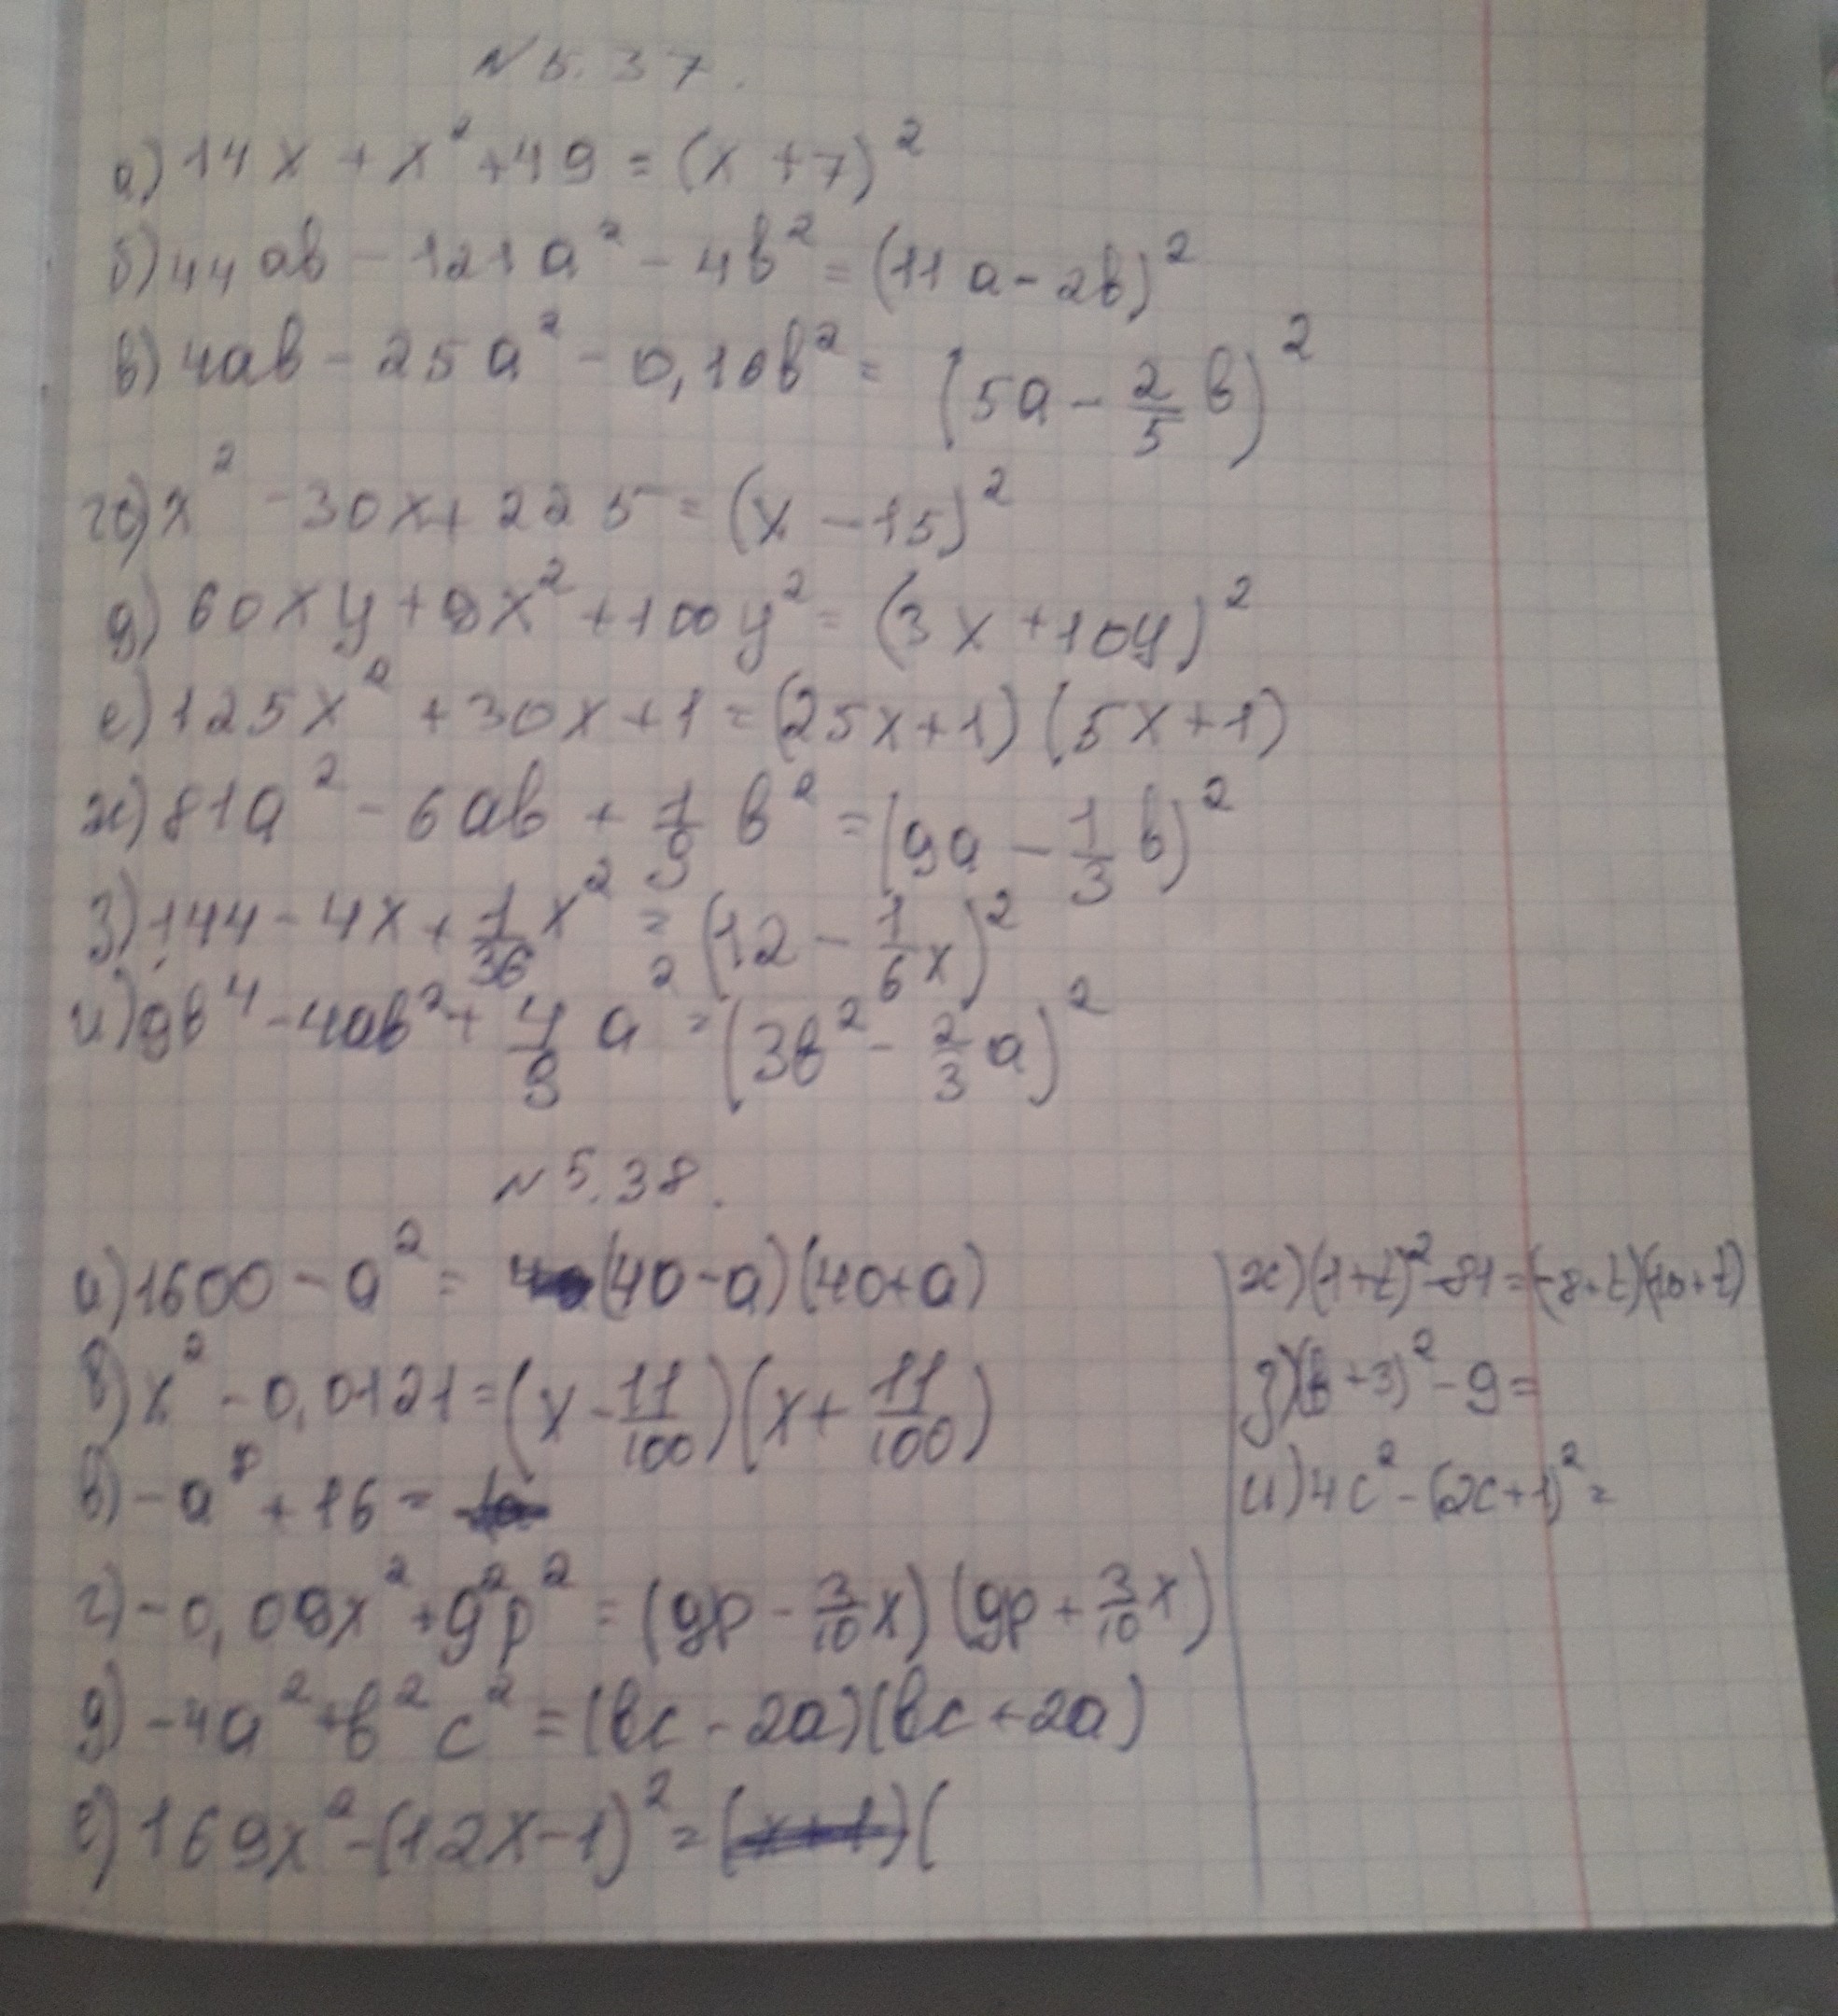 N 5.37.
а) 14x + x² + 49 = (x + 7)²
б) 44ab - 121a² - 4b² = (11a - 2b)²
в) 4ab - 25a² - 0,16b² = (5a - 2/5 b)²
г) x² - 30x + 225 = (x - 15)²
д) 60xy + 9x² + 100y² = (3x + 10y)²
е) 125x² + 30x + 1 = (25x + 1)(5x + 1)
ж) 81a² - 6ab + 1/9 b² = (9a - 1/3 b)²
з) 144 - 4x + 1/36 x² = (12 - 1/6 x)²
и) 9b⁴ - 4ab² + 4/9 a² = (3b² - 2/3 a)²
N 5.38.
а) 1600 - a² = (40 - a)(40 + a)
б) x² - 0,0121 = (x - 11/100)(x + 11/100)
в) -a⁸ + 16 =
г) -0,09x² + g²p² = (gp - 3/10 x)(gp + 3/10 x)
д) -4a² + b²c² = (bc - 2a)(bc + 2a)
е) 169x² - (12x - 1)² = (x + 1)(
ж) (1 + t)² - 81 = (-8 + t)(10 + t)
з) (b + 3)² - 9 =
и) 4c² - (2c + 1)² =